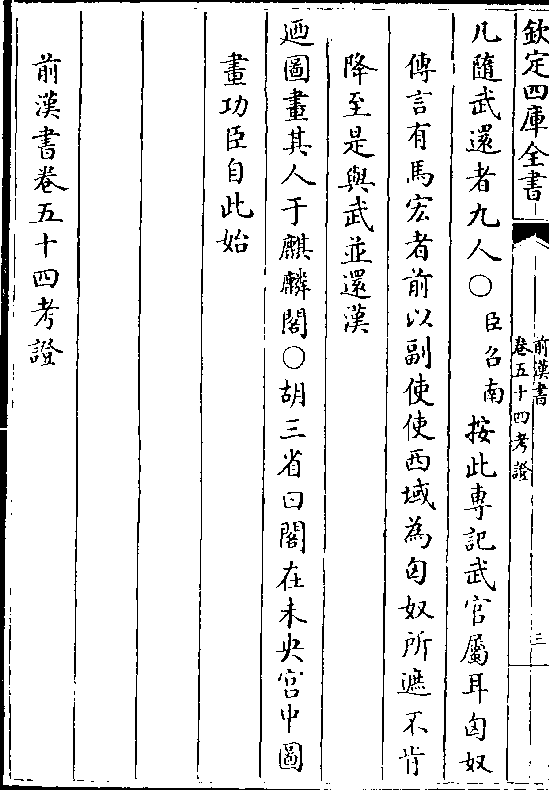 欽定四庫全書
前漢書
卷五十四考證
三
凡隨武還者九人〇臣召南按此專記武官屬耳匈奴
傳言有馬宏者前以副使使西域為匈奴所遮不肯
降至是與武並還漢
廼圖畫其人于麒麟閣〇胡三省曰閣在未央宮中圖
畫功臣自此始
前漢書卷五十四考證